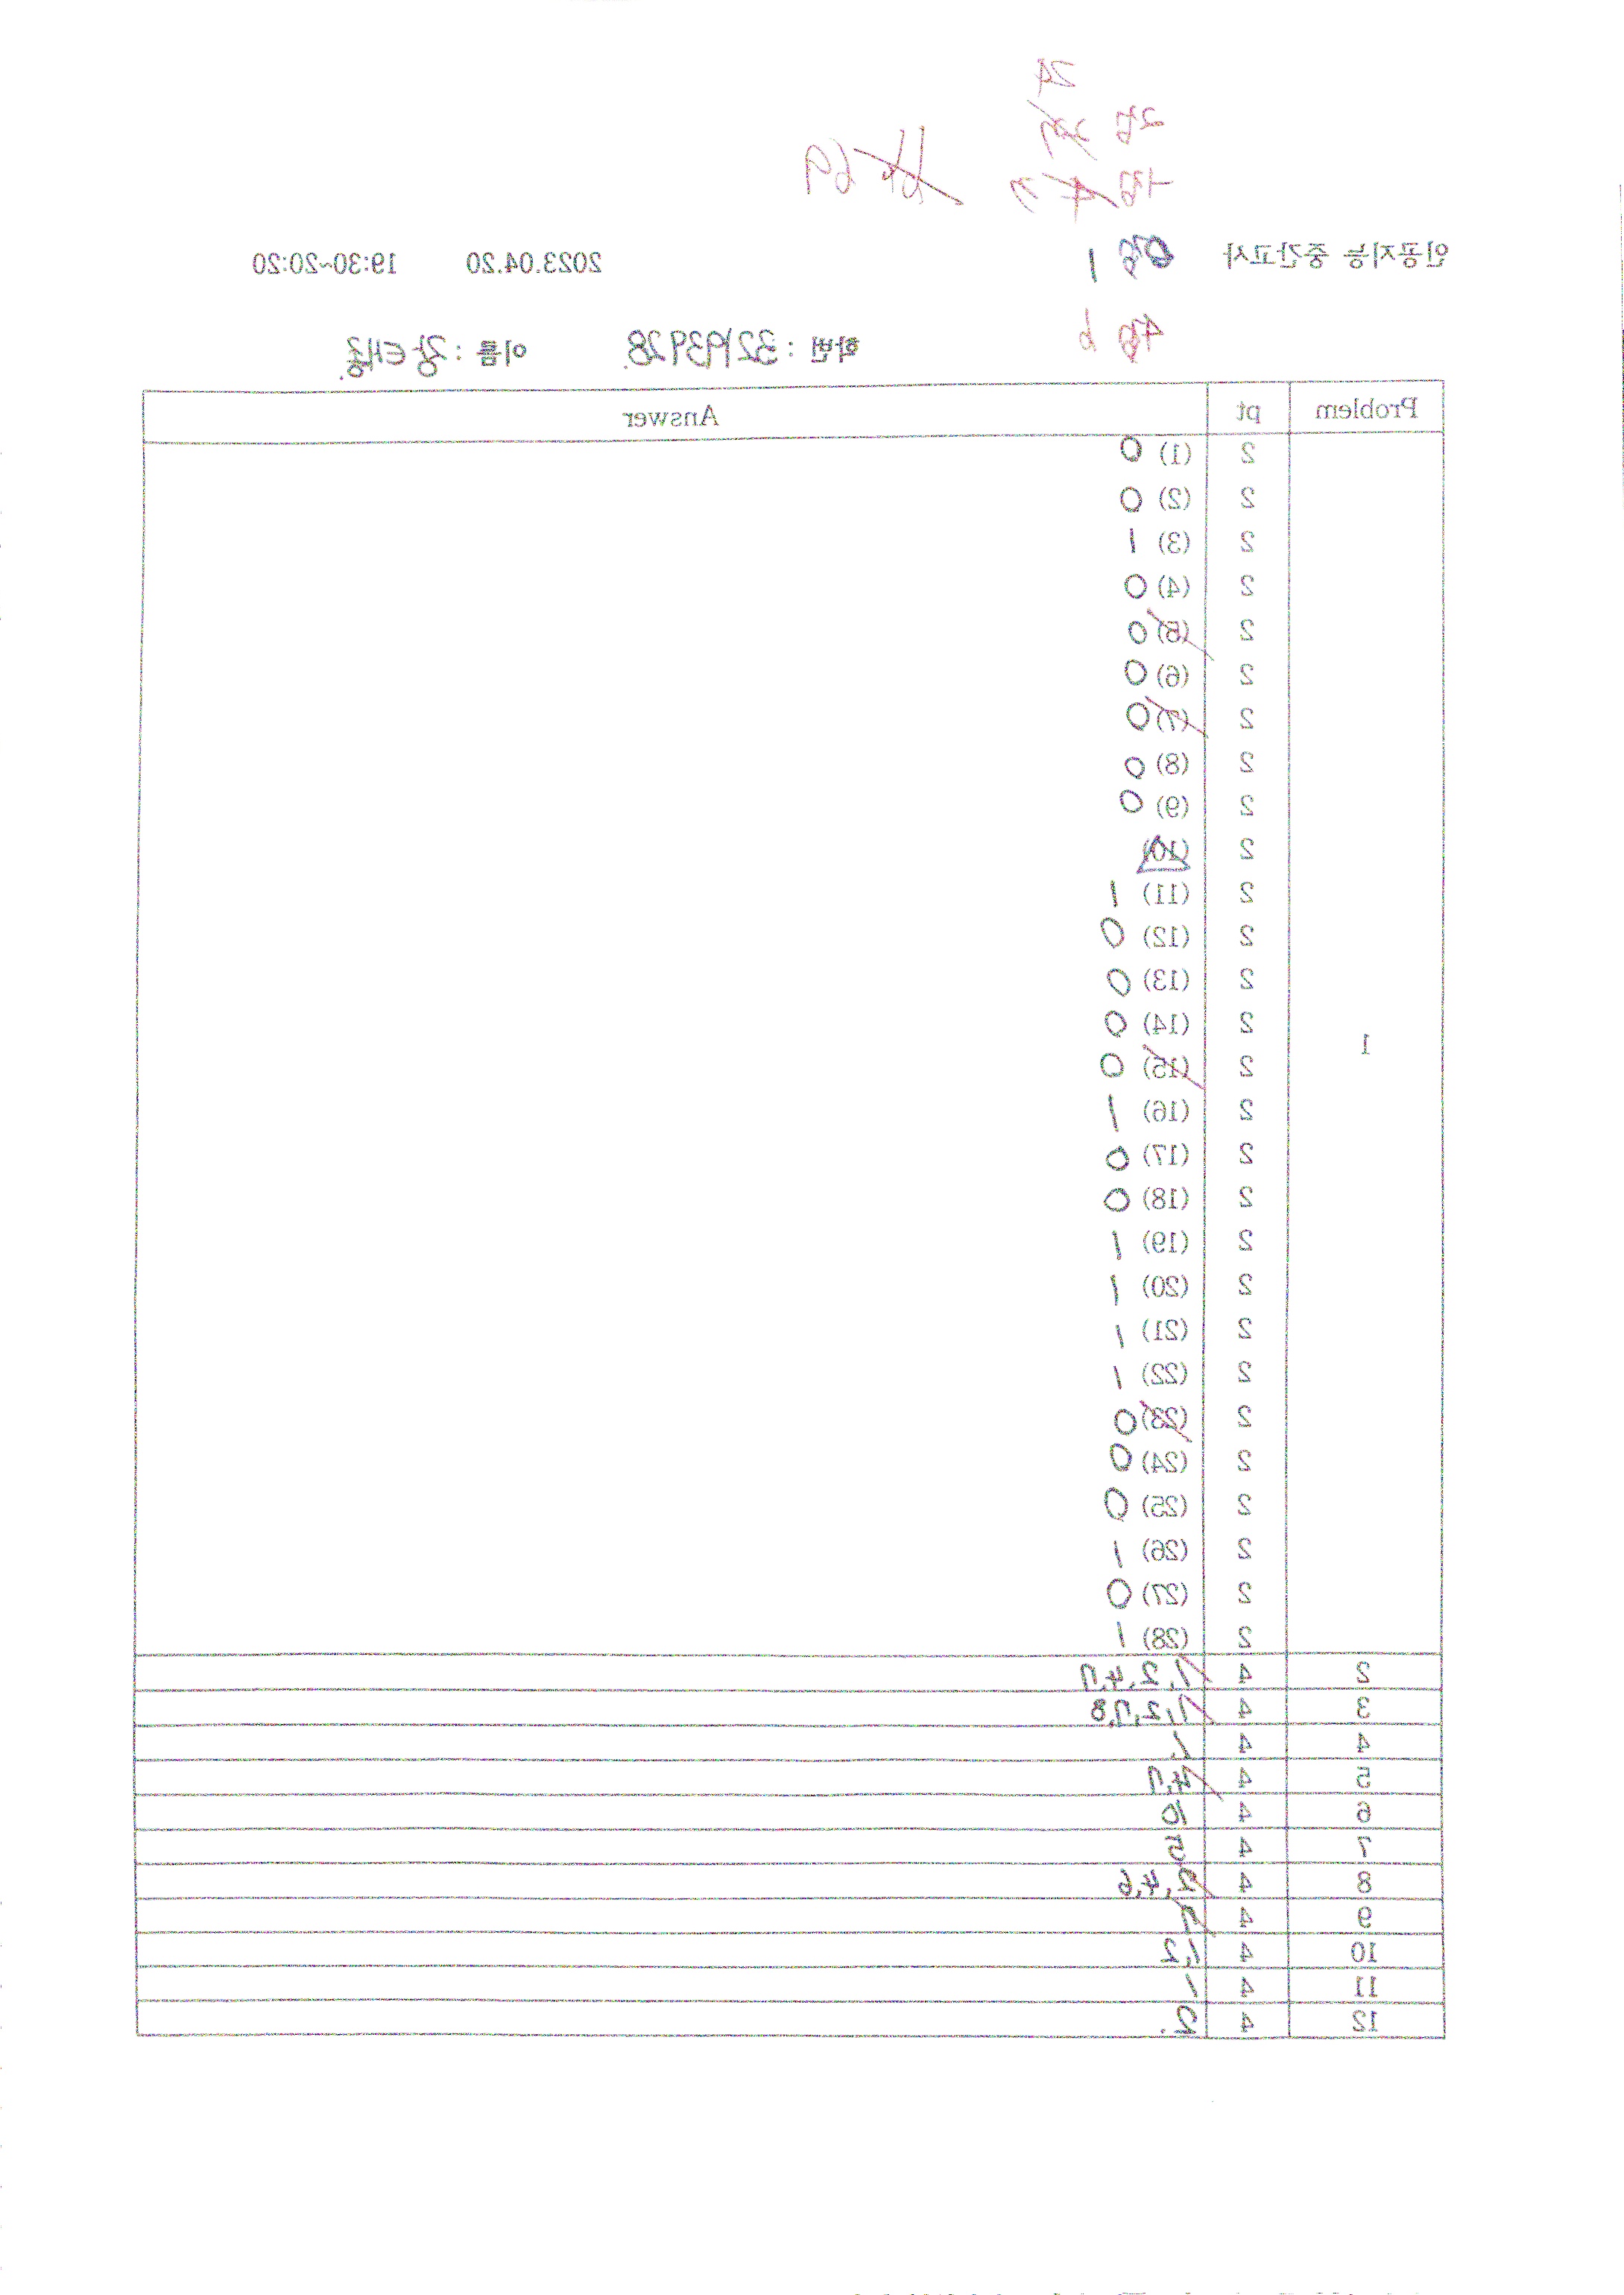 24
2점
1점 7
0점 1
4점 6
69
인공지능 중간고사 2023.04.20 19:30~20:20
학번 : 32193928. 이름 : 강태홍.
Problem pt Answer
1
2 (1) 0
2 (2) 0
2 (3) 1
2 (4) 0
2 (5) 0
2 (6) 0
2 (7) 0
2 (8) 0
2 (9) 0
2 (10)
2 (11) 1
2 (12) 0
2 (13) 0
2 (14) 0
2 (15) 0
2 (16) 1
2 (17) 0
2 (18) 0
2 (19) 1
2 (20) 1
2 (21) 1
2 (22) 1
2 (23) 0
2 (24) 0
2 (25) 0
2 (26) 1
2 (27) 0
2 (28) 1
2 4 1,2,4,7
3 4 1,2,7,8
4 4 1
5 4 4,7
6 4 10
7 4 5
8 4 2,4,6
9 4 7
10 4 1,2
11 4 1
12 4 2.